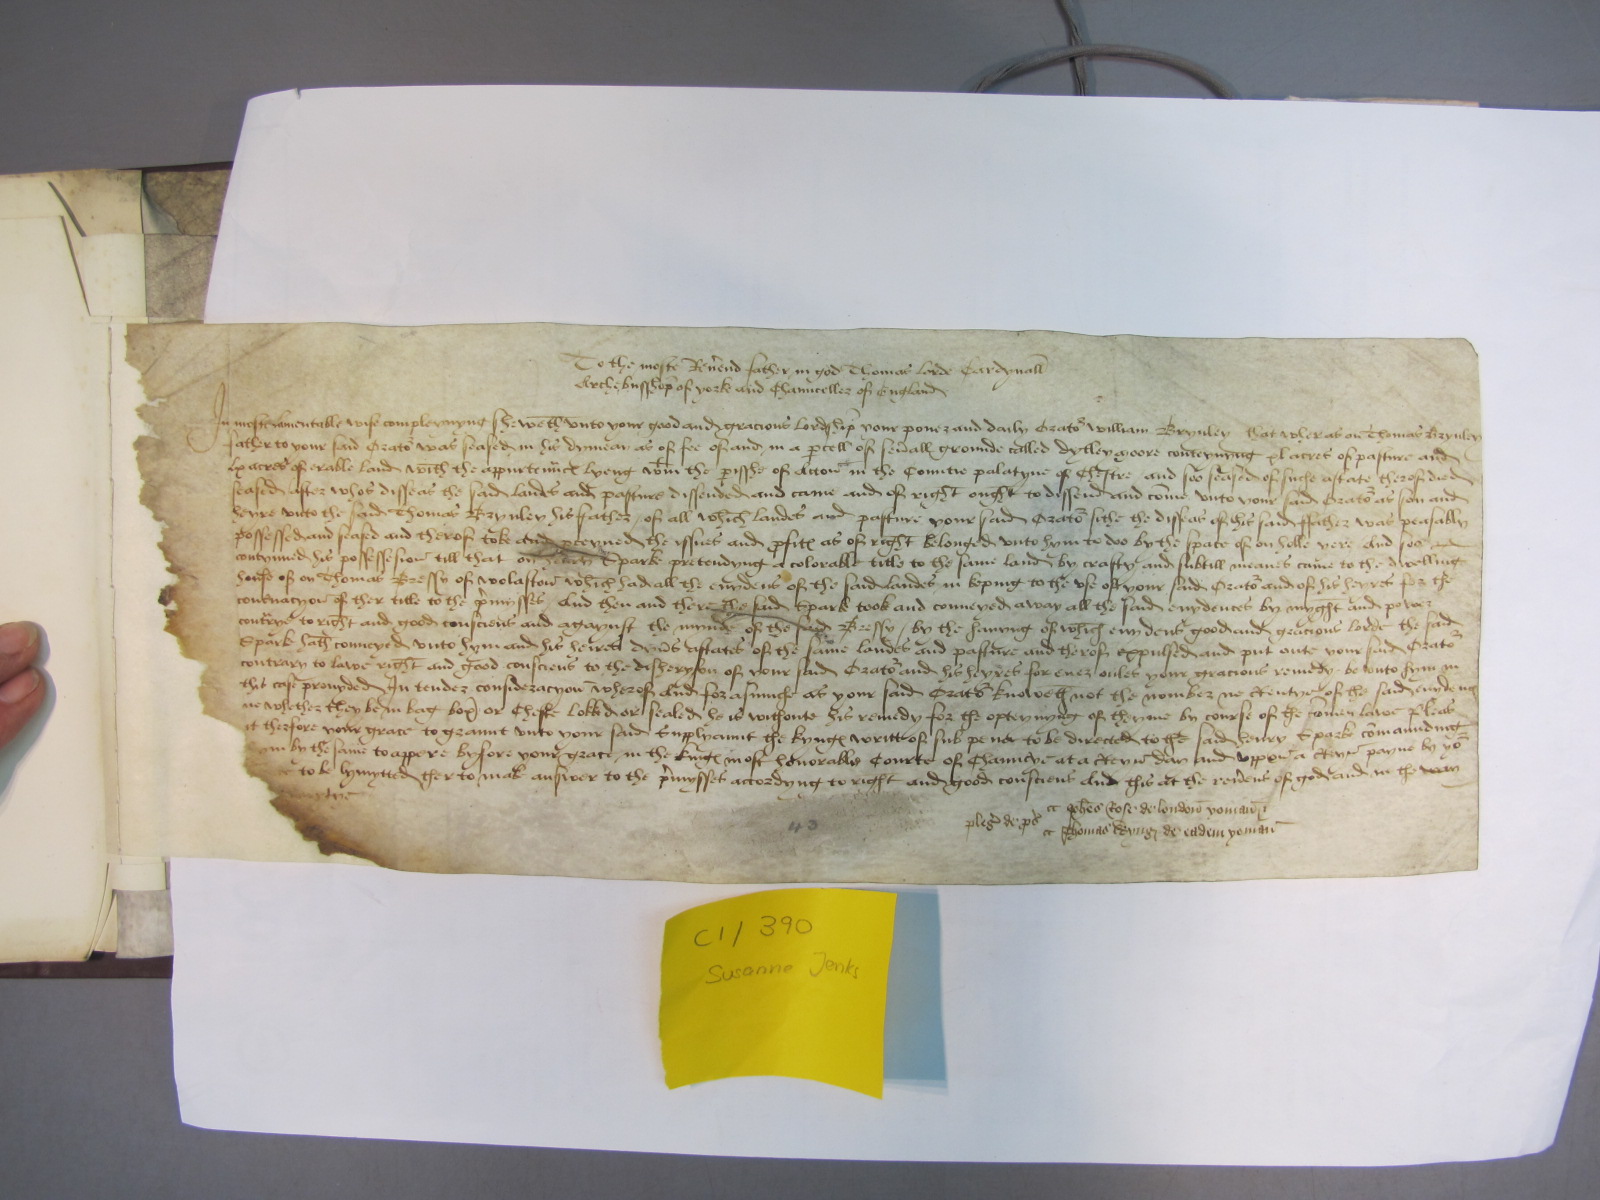 To the moste Rev'end father in god Thomas lorde Cardynall
Archebusshop of york and Chaunceller of England
In moste lamentable wise compleynyng sheweth unto your good and gracious lordship your power and daily Orato' William Brynley that wher as on Thomas Brynley
father to your said Orato' was seased in his dymean as of fee of and in a p'cell of sev'all grounde called dylley moore conteynyng xl acres of pasture and
lx acres of erable land with the appurten'nc' lyeng w'in the p'isshe of Acton in the Countie palatyne of Chestre and soo seased of suche astate therof died
seased after whos disseas the said landes and pasture dissended and came and of right ought to dissend and come unto your said Orato' as son and
heyre unto the said Thomas Brynley his father / of all which landes and pasture your said Orato' sithe the disseas of his said ffather was peasably
possessed and seased and therof toke and p'ceyved the yssues and p'fitz as of right belonged unto hym to doo by the space of on holle yere And soo
contynued his possession till that on henry Spark pretendyng a colorable title to the same land by crafty and subtill meanes came to the dwelling
house of on Thomas Bressy of Wolaston which had all the evydens of the said landes in keping to the use of your said Orato' and of his heyres for the
conservacyon of ther title to the p'mysses / And then and there the said Spark took and conveyed away all the said evydences by myght and power
contrye to right and good consciens and agaynst the mynde of the said Bressy / by the havyng of which evydens good and gracious lorde the said
Spark hath conveyed unto hym and his heires dyv's astates of the same landes and pasture and therof expulsed and put oute your said Orato'
contrary to lawe right and good consciens to the disheryson of your said Orato' and his heyres for ever onles your gracious remedy be unto hym in
this case provyded In tender consideracyon wherof And for asmuche as your said Orato' knoweth not the nomber ne c'tentye of the said evydens
ne whether they be in bag box or Cheste lokked or sealed he is withoute his remedy for the opteynyng of theyme by course of the co'men lawe Pleas
it therfore your grace to graunt unto your said Supplyaunt the kyngs writt of sub pena to be directed to the said henry Spark comaunding
hym by the same to appere byfore your grace in the kings most honorable Courte of Chauncye at a c'teyn day and uppon a c'teyn payne by yo'
to be lymytted ther to mak answer to the p'mysses accordyng to right and good consciens And this at the rev'ens of god and in the way
43
pleg' de p's
Joh'es Rose de london yoman
Thomas kyng de eadem yoman
C1/390
Susanne Jenks